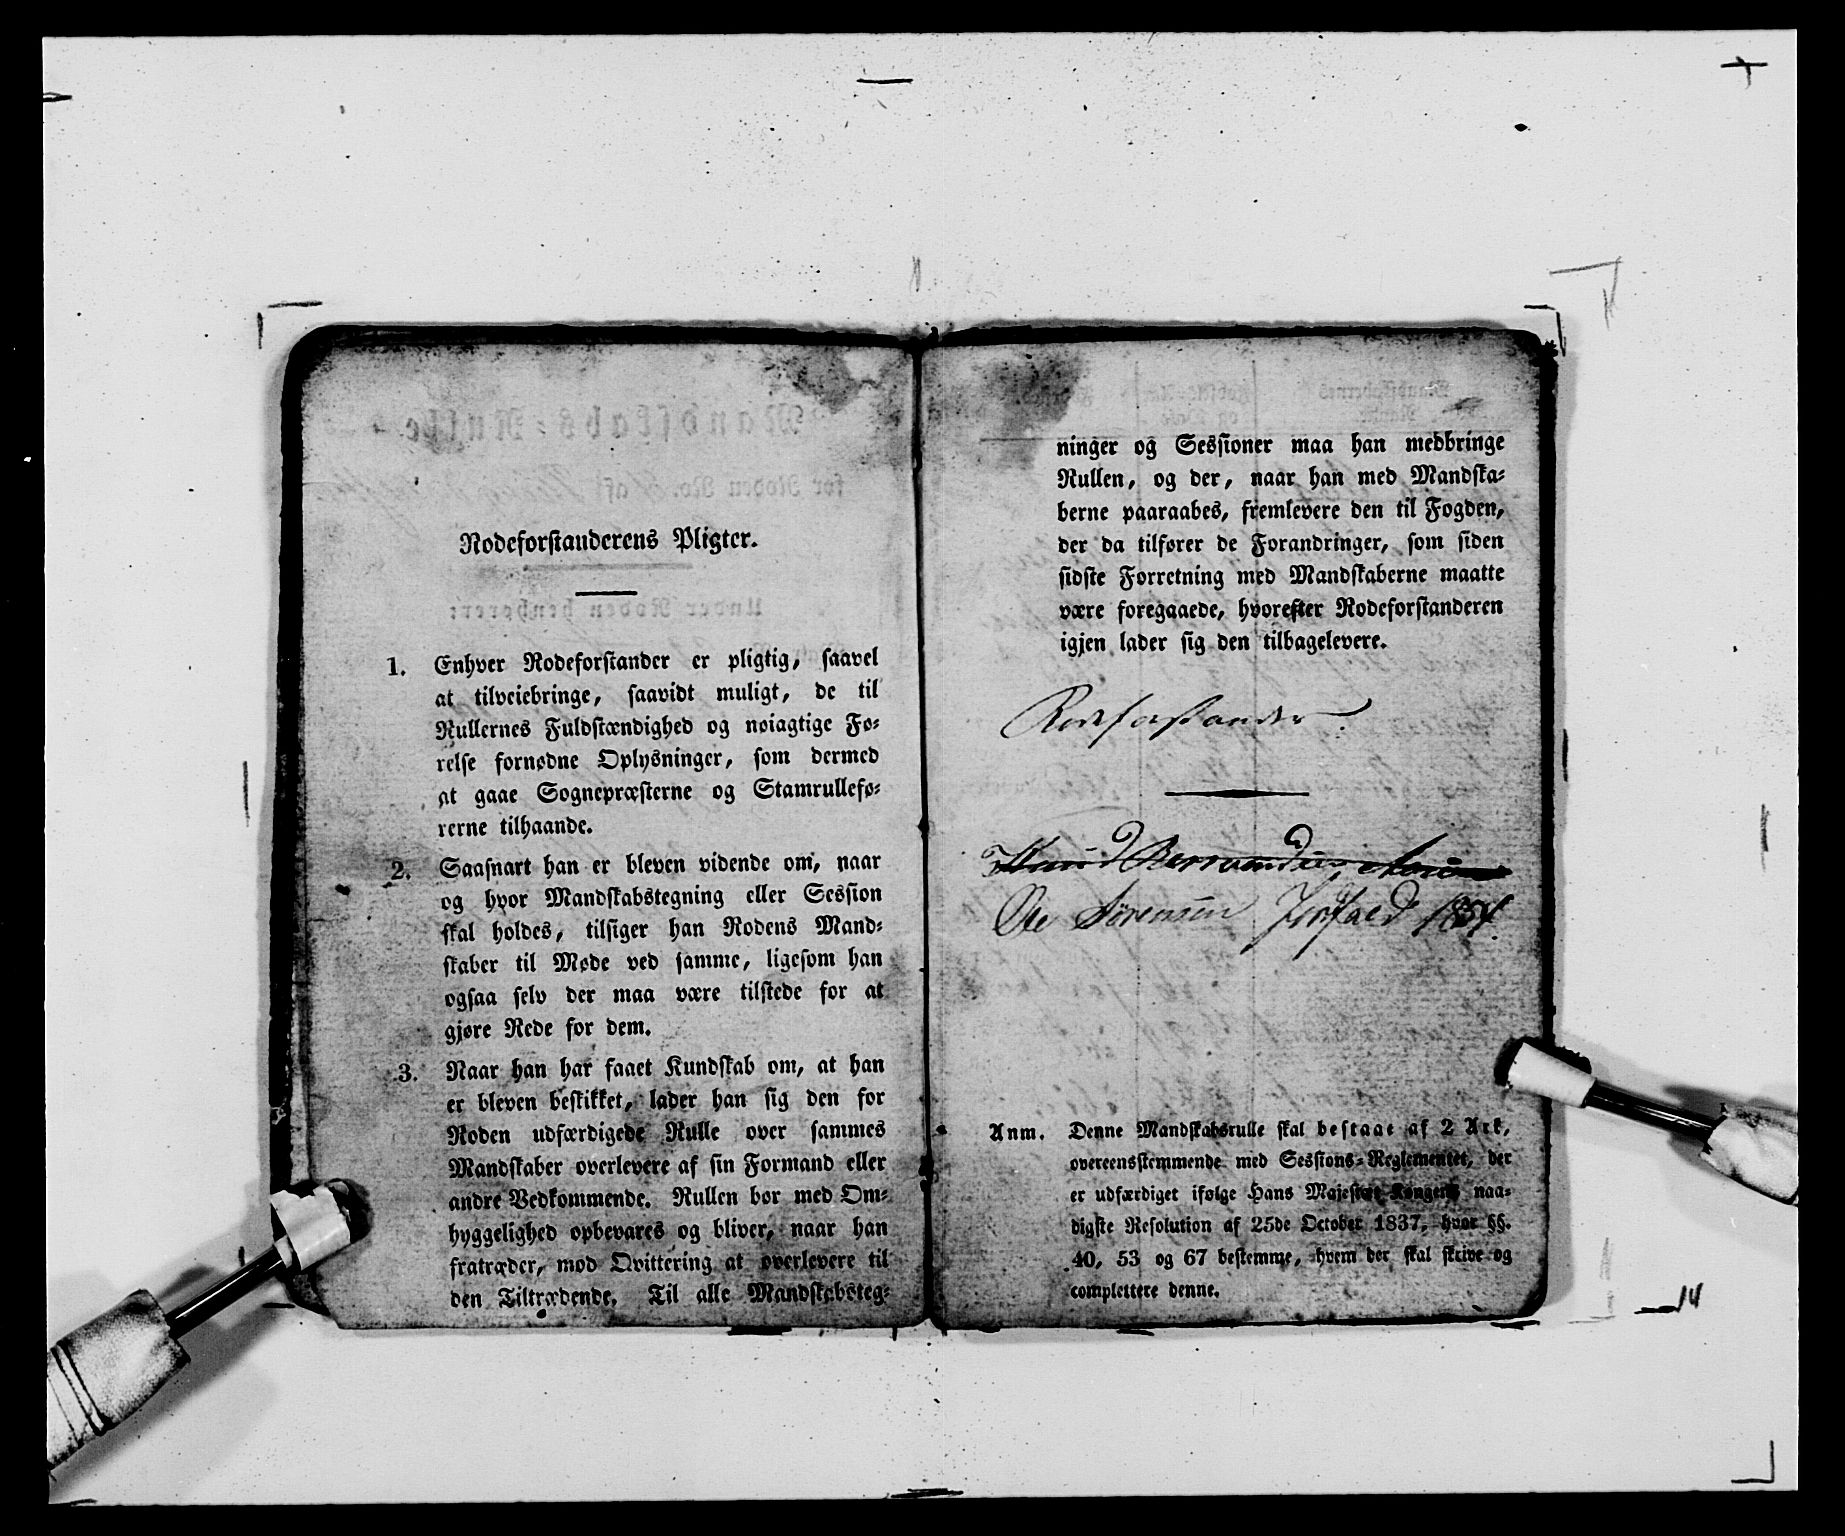 Rodeforstanderens Pligter.
1. Enhver Rodeforstander er pligtig, saavel
at tilveiebringe, saavidt muligt, de til
Rullernes Fuldstændighed og nøiagtige Fø-
relse fornødne Oplysninger, som dermed
at gaae Sognepræsterne og Stamrullefø-
rerne tilhaande.
2. Saasnart han er bleven vidende om, naar
og hvor Mandskabstegning eller Session
skal holdes, tilsiger han Rodens Mand-
skaber til Møde ved samme, ligesom han
ogsaa selv der maa være tilstede for at
gjøre Rede for dem.
3. Naar han har faaet Kundskab om, at han
er bleven beskikket, lader han sig den for
Roden udfærdigede Rulle over sammes
Mandskaber overlevere af sin Formand eller
andre Vedkommende. Rullen bør med Om-
hyggelighed opbevares og bliver, naar han
fratræder, mod Qvittering at overlevere til
den Tiltrædende. Til alle Mandskabsteg-
ninger og Sessioner maa han medbringe
Rullen, og der, naar han med Mandska-
berne paaraabes, fremlevere den til Fogden,
der da tilfører de Forandringer, som siden
sidste Forretning med Mandskaberne maatte
være foregaaede, hvorefter Rodeforstanderen
igjen lader sig den tilbagelevere.
Rodeforstander
Ole Sørensen 1854.
Anm. Denne Mandskabsrulle skal bestaae af 2 Ark,
overeensstemmende med Sessions-Reglementet, der
er udfærdiget ifølge Hans Majestæt Kongens naa-
digste Resolution af 25de October 1837, hvor §§.
40, 53 og 67 bestemme, hvem der skal skrive og
complettere denne.
14